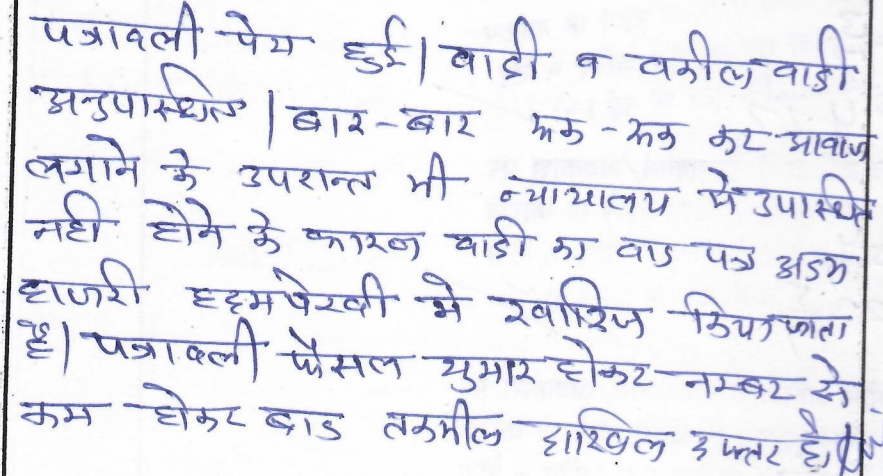 पत्रावली पेश हुई। वादी व वकील वादी
अनुपस्थित। बार-बार रूक-रूक कर आवाज
लगाने के उपरान्त भी न्यायालय मे उपस्थित
नही होने के कारण वादी का वाद पत्र अदम
हाजरी अदमपेरवी मे खारिज किया जाता
है। पत्रावली फैसल शुमार होकर नम्बर से
कम होकर बाद तकमील दाखिल दफ्तर है।